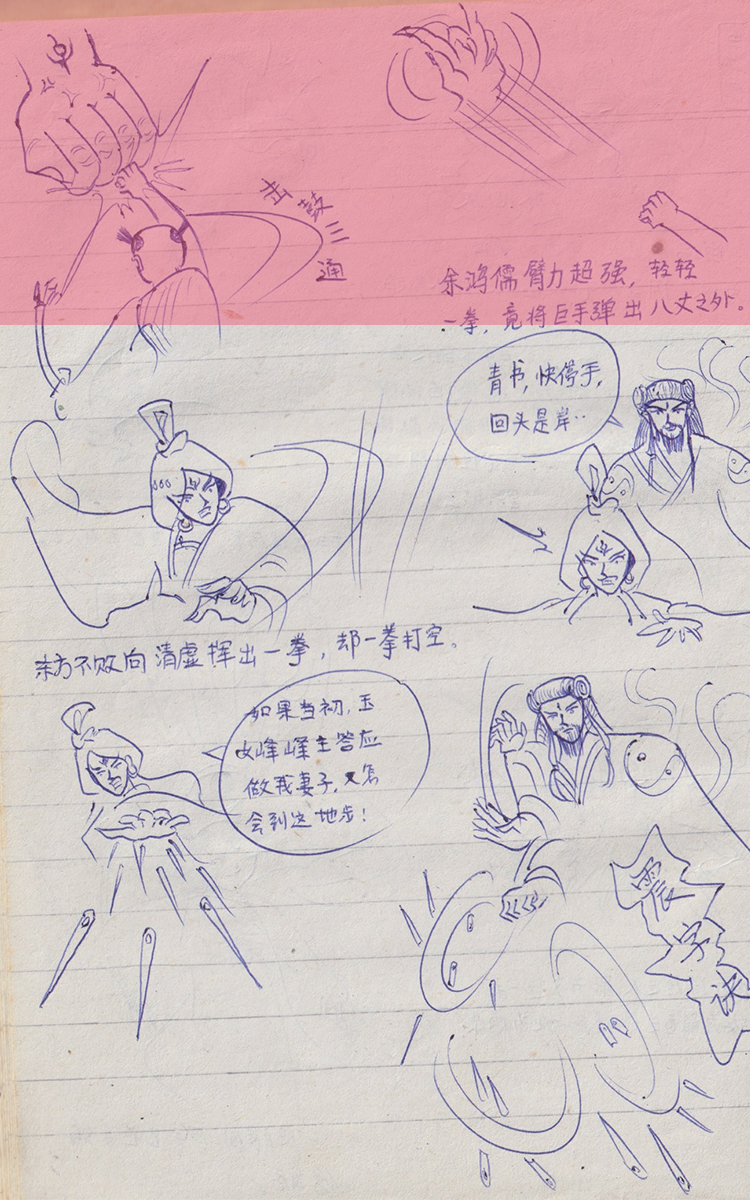 击鼓三
通
余鸿儒臂力超强，轻轻
一拳，竟将巨手弹出八丈之外。
青书，快停手，
回头是岸··
东方不败向清虚挥出一拳，却一拳打空。
如果当初，玉
女峰峰主答应
做我妻子，又怎
会到这地步！
震
字
诀